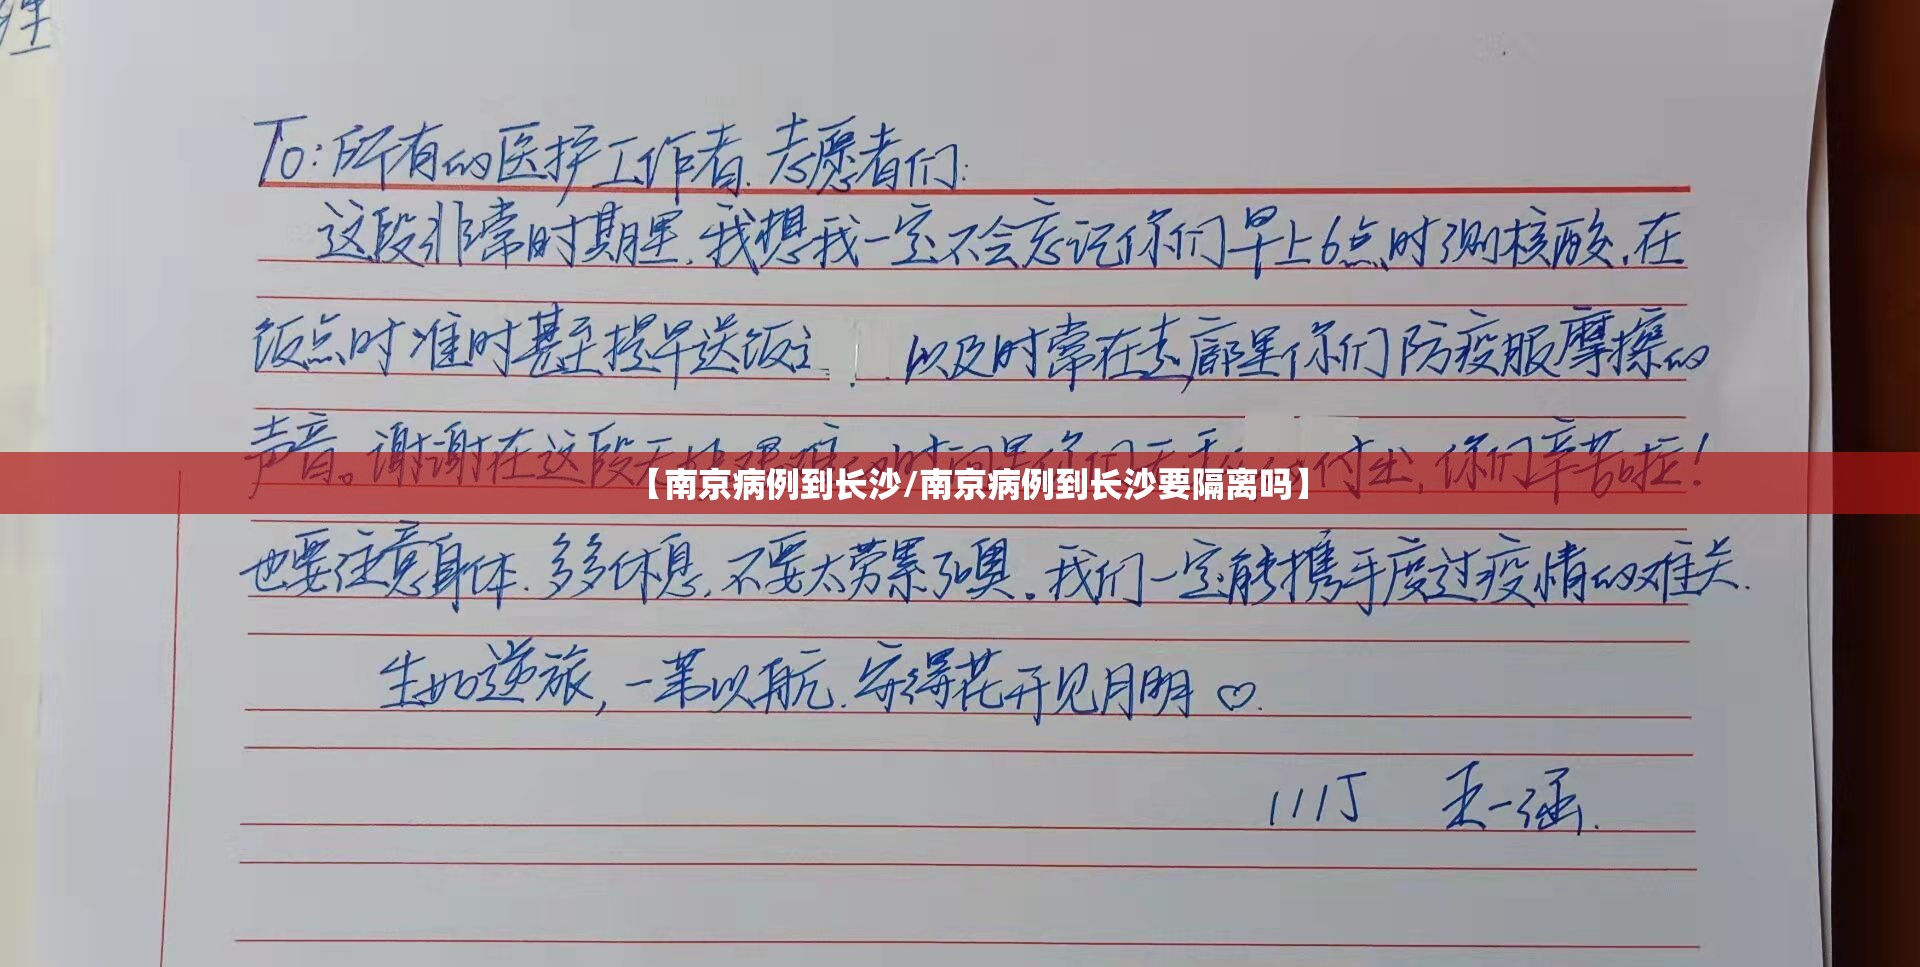 理
To:所有的医护工作者.志愿者们:
这段非常时期里,我想我一定不会忘记你们早上6点时测核酸,在
饭点时准时甚至提早送饭 以及时常在走廊里你们防疫服摩擦的
声音。谢谢在这段 时间里你们无私 付出,你们辛苦啦!
【南京病例到长沙/南京病例到长沙要隔离吗】
也要注意身体.多多休息,不要太劳累了噢。我们一定能携手度过疫情的难关.
生如逆旅,一苇以航.守得花开见月明♡.
111J 王一涵.